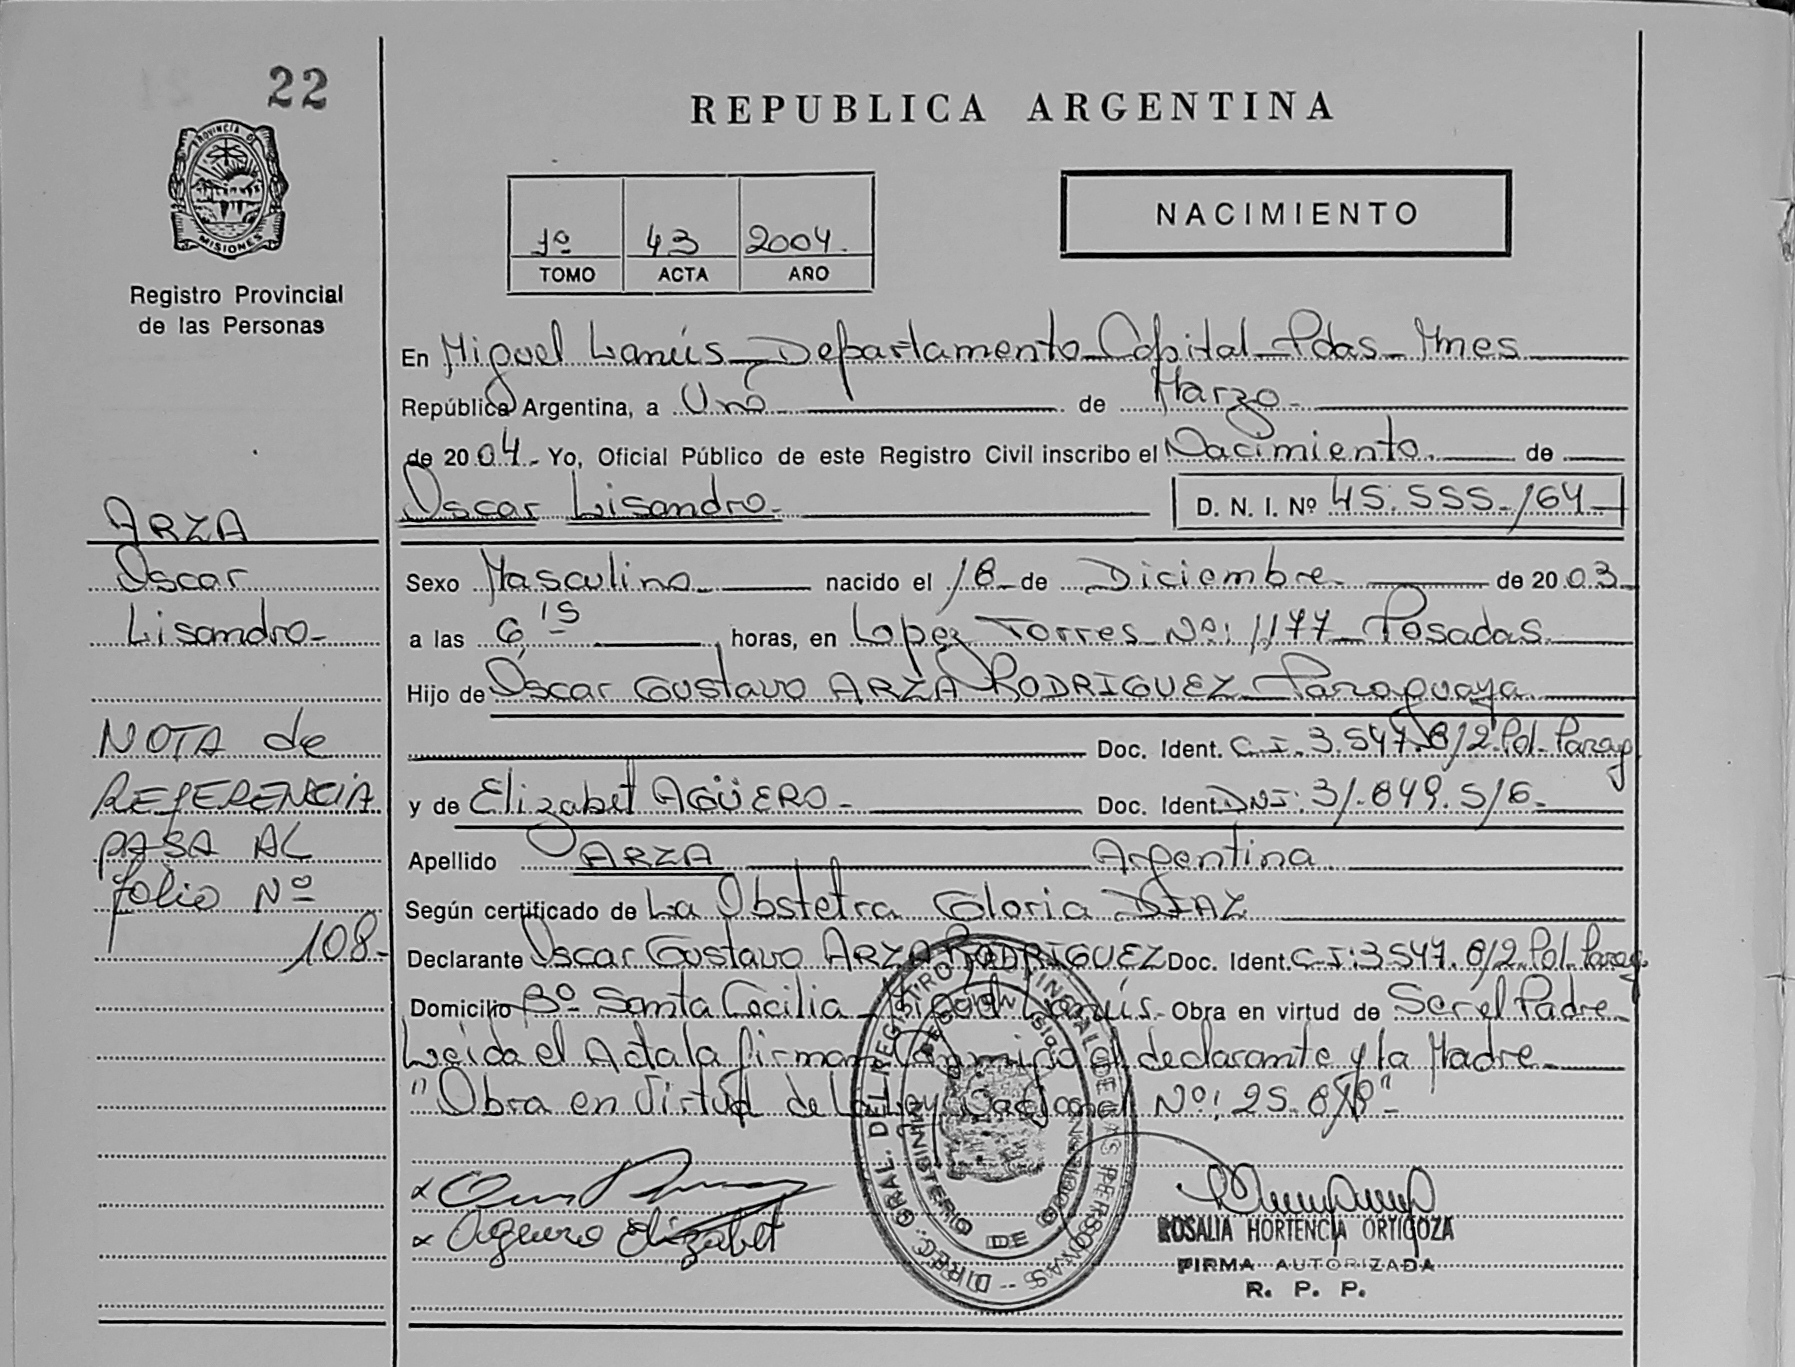 22
PROVINCIA DE
MISIONES
Registro Provincial
de las Personas
REPUBLICA ARGENTINA
NACIMIENTO
1º 43 2004.
TOMO ACTA AÑO
En Miguel Lanús Departamento Capital Pdas Mnes
República Argentina, a Uno de Marzo
de 2004. Yo, Oficial Público de este Registro Civil inscribo el Nacimiento. de
Oscar Lisandro. D. N. I. Nº 45.555.164
Sexo Masculino nacido el 18 de Diciembre de 2003
a las 6,15 horas, en Lopéz Torres Nº: 1177 Posadas
Hijo de Oscar Gustavo ARZA RODRIGUEZ Paraguaya
Doc. Ident. C.I. 3.547.812 Pol. Parag
y de Elizabet AGÜERO Doc. Ident. DNI: 31.849.518
Apellido ARZA Argentina
Según certificado de La Obstetra Gloria DIAZ
Declarante Oscar Gustavo ARZA RODRIGUEZ Doc. Ident. C.I: 3547.812 Pol. Parag
Domicilio Bº Santa Cecilia Miguel Lanús. Obra en virtud de Ser el Padre
Leida el Acta la firman Conmigo el declarante y la Madre
"Obra en Virtud de la Ley Nacional Nº: 25.819"
x Aguero Elizabet
ROSALIA HORTENCIA ORTIGOZA
FIRMA AUTORIZADA
R. P. P.
DIREC. GRAL. DEL REGISTRO PROVINCIAL DE LAS PERSONAS
MINISTERIO DE GOBIERNO
ARZA
Oscar
Lisandro
NOTA de
REFERENCIA
PASA AL
folio Nº
108